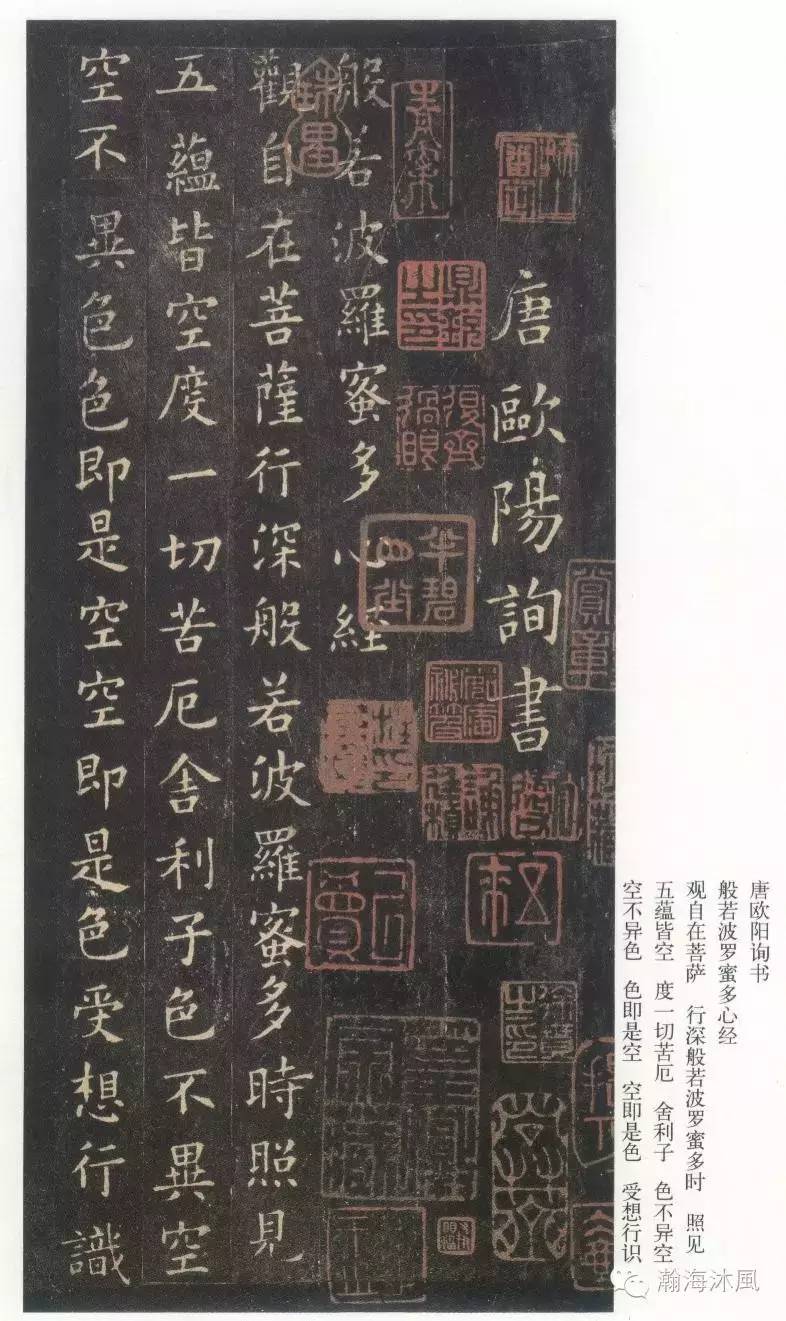 唐歐陽詢書
般若波羅蜜多心経
觀自在菩薩行深般若波羅蜜多時照見
五蘊皆空度一切苦厄舍利子色不異空
空不異色色即是空空即是色受想行識
唐欧阳询书
般若波罗蜜多心经
观自在菩萨 行深般若波罗蜜多时 照见
五蕴皆空 度一切苦厄 舍利子 色不异空
空不异色 色即是空 空即是色 受想行识
瀚海沐風